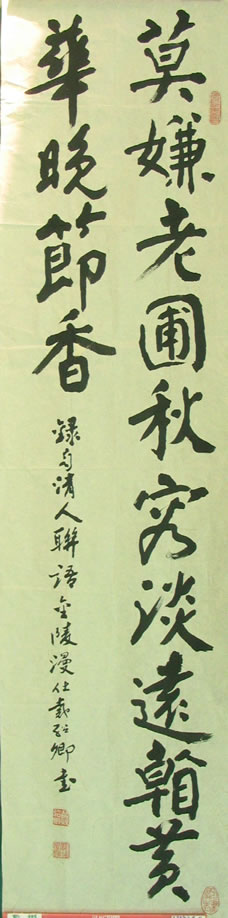 莫嫌老圃秋容淡遠翰黃
華晚節香
錄自清人聯語金陵漫仕戴卿書